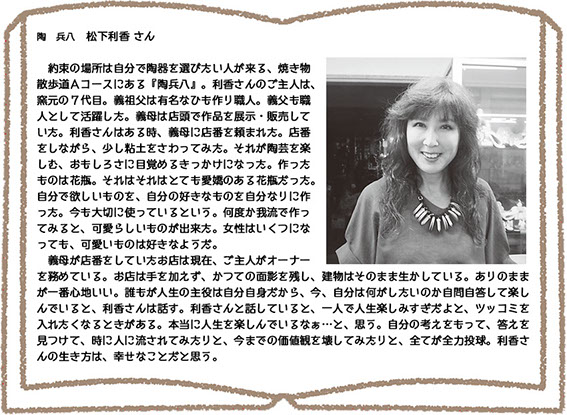 陶　兵八　松下利香 さん
約束の場所は自分で陶器を選びたい人が来る、焼き物
散歩道Ａコースにある『陶兵八』。利香さんのご主人は、
窯元の７代目。義祖父は有名なひも作り職人。義父も職
人として活躍した。義母は店頭で作品を展示・販売して
いた。利香さんはある時、義母に店番を頼まれた。店番
をしながら、少し粘土をさわってみた。それが陶芸を楽
しむ、おもしろさに目覚めるきっかけになった。作った
ものは花瓶。それはそれはとても愛嬌のある花瓶だった。
自分で欲しいものを、自分の好きなものを自分なりに作
った。今も大切に使っているという。何度か我流で作っ
てみると、可愛らしいものが出来た。女性はいくつにな
っても、可愛いものは好きなようだ。
義母が店番をしていたお店は現在、ご主人がオーナー
を務めている。お店は手を加えず、かつての面影を残し、建物はそのまま生かしている。ありのまま
が一番心地いい。誰もが人生の主役は自分自身だから、今、自分は何がしたいのか自問自答して楽し
んでいると、利香さんは話す。利香さんと話していると、一人で人生楽しみすぎだよと、ツッコミを
入れたくなるときがある。本当に人生を楽しんでいるなぁ…と、思う。自分の考えをもって、答えを
見つけて、時に人に流されてみたりと、今までの価値観を壊してみたりと、全てが全力投球。利香さ
んの生き方は、幸せなことだと思う。